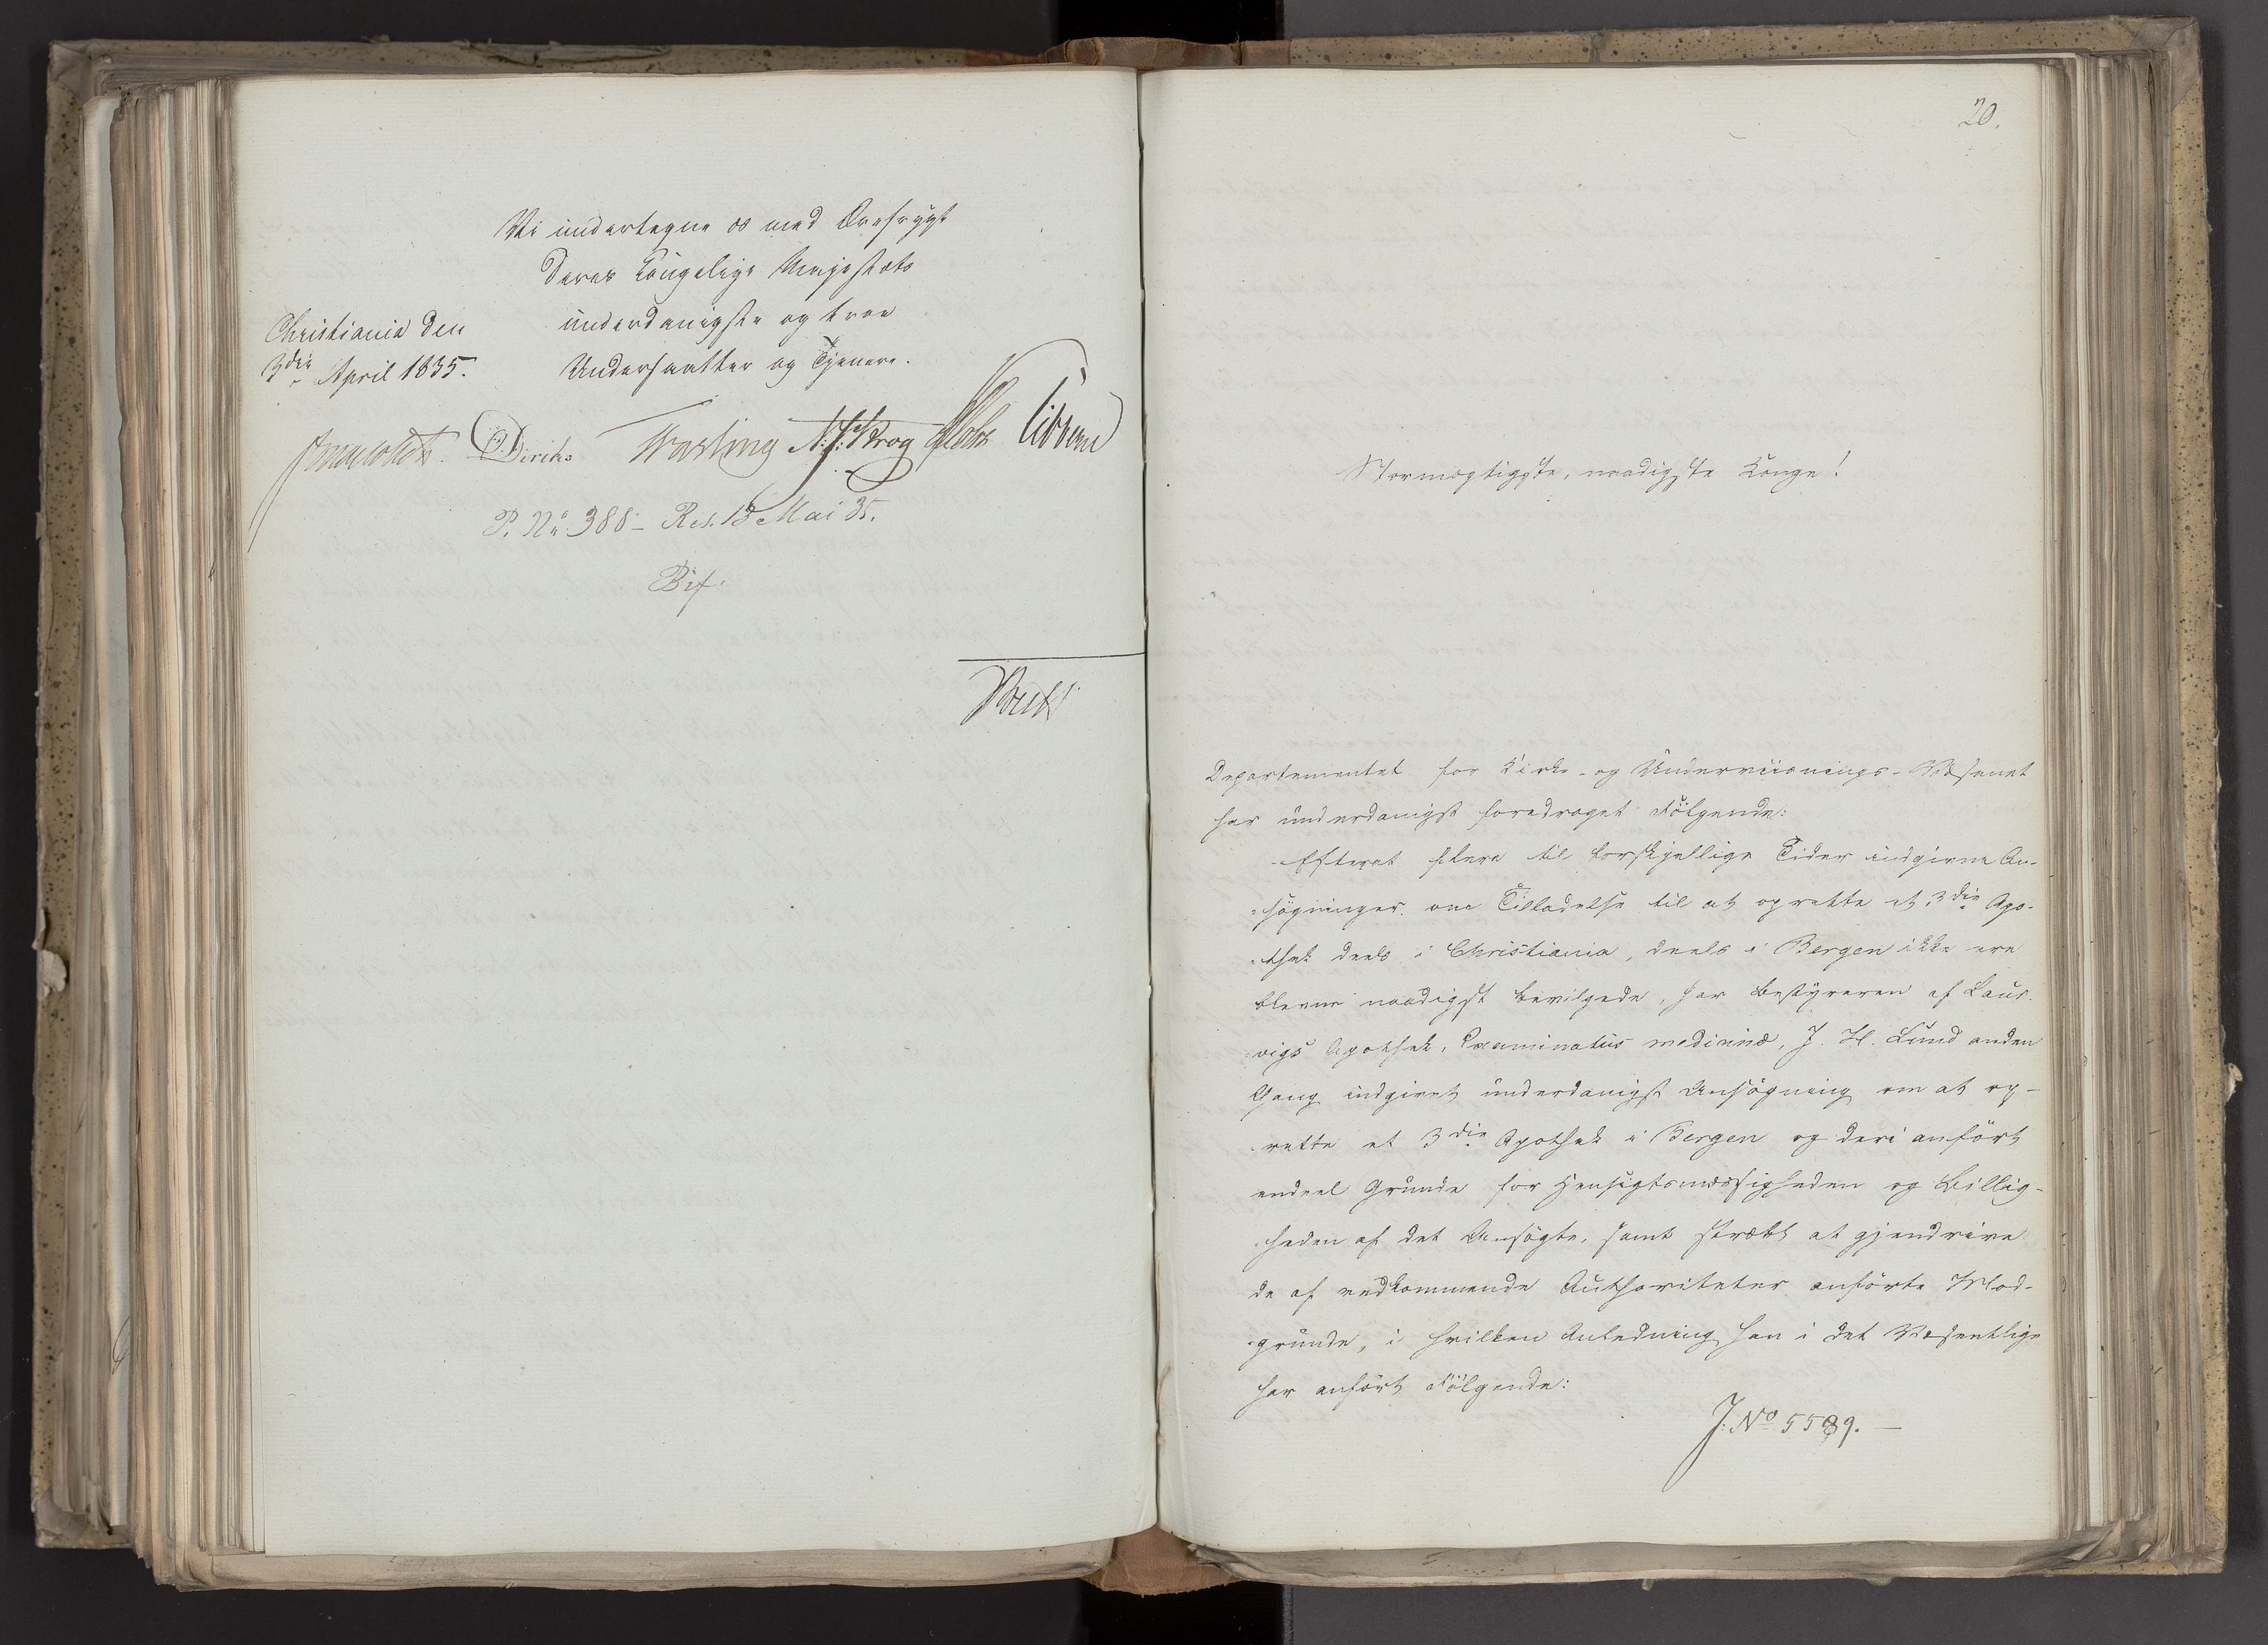 Vi undertegne os med Ærefrygt
Deres Kongelige Majestæts
underdanigste og troe
Undersaatter og Tjenere.
Christiania den
3die April 1835.
Diriks Vogt N. J. Krog Holst Sibbern
P. No 388 - Res. 13 Mai 35.
Bif.
20.
Stormægtigste, naadigste Konge!
Departementet for Kirke- og Underviisnings-Væsenet
har underdanigst foredraget Følgende:
Efterat flere til forskjellige Tider indgivne An-
søgninger om Tilladelse til at oprette et 3die Apo-
thek deels i Christiania, deels i Bergen ikke ere
blevne naadigst bevilgede, har Bestyreren af Laur-
vigs Apothek, Examinatus medicinæ, J. H. Lund anden
Gang indgivet underdanigst Ansøgning om at op-
rette et 3die Apothek i Bergen og deri anført
endeel Grunde for Hensigtsmæssigheden og Billig-
heden af det Ansøgte, samt stræbt at gjendrive
de af vedkommende Authoriteter anførte Mod-
grunde, i hvilken Anledning han i det Væsentlige
har anført Følgende:
J. No 5589. -